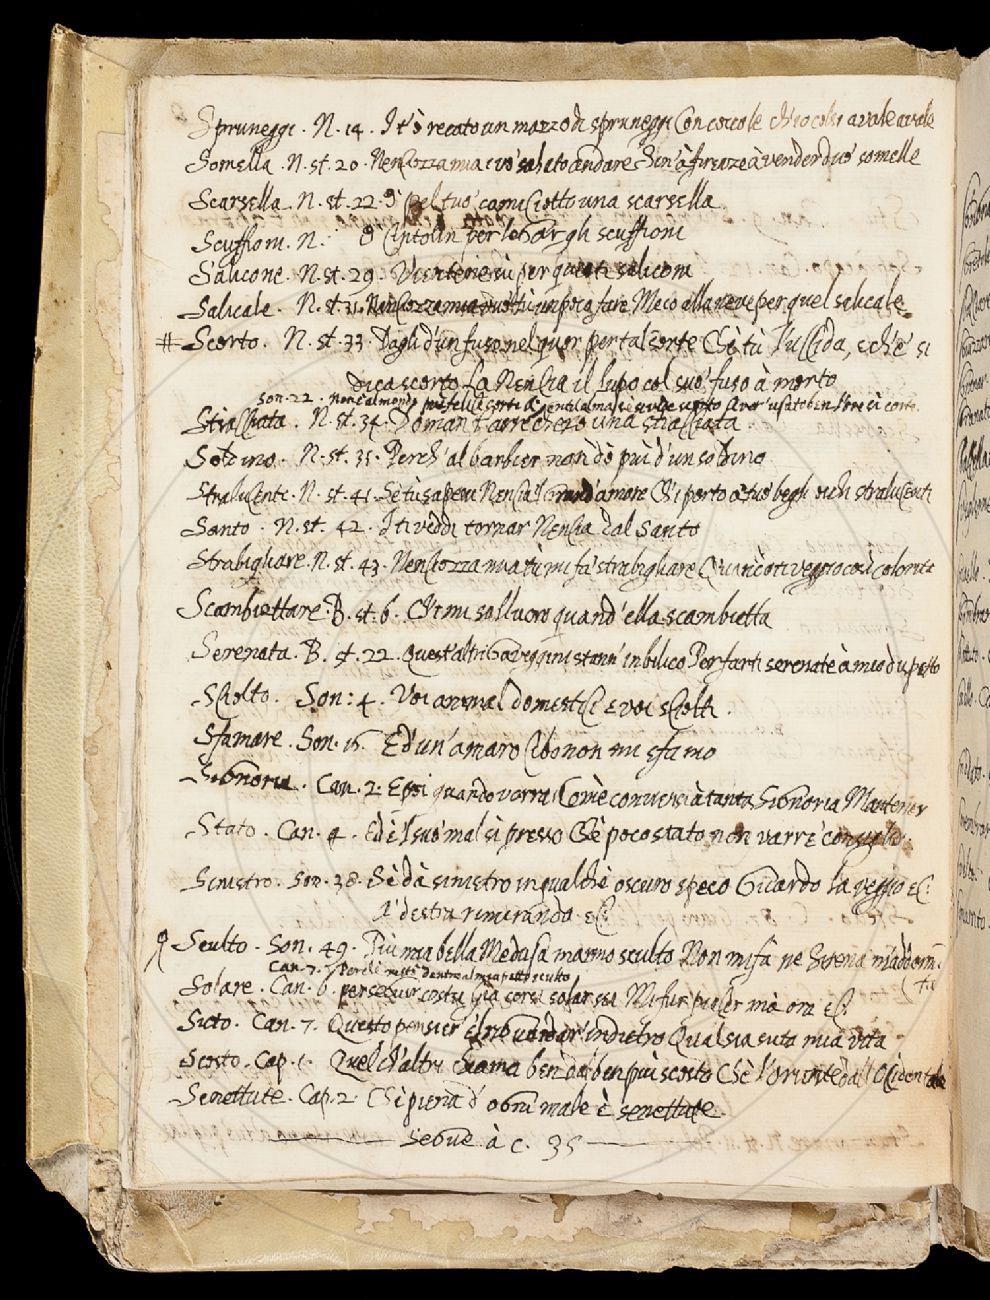 Spruneggi. N. 14. I t'ò recato un mazzo di spruneggi Con coccole ch'io colsi avale avale
Somella. N. st. 20. Nenciozza mia i vo' sabato andare Sin'à firenze à vender duo somelle
Scarsella. N. st. 22. O pel tuo camiciotto una scarsella
Scuffioni. N. O cintolin per legar gli scuffioni
Salicone. N. st. 29. Vientene su per questi saliconi
Salicale. N. st. 31. Nenciozza mia vuo' tù un poco fare Meco alla neve per quel salicale
# Scorto. N. st. 33. Dagli d'un fuso nel quor per tal sorte Chè tù l'uccida, e chè si
dica scorto La Nencia il lupo col suo' fuso à morto
Son. 22.
Stiacciata. N. st. 34. Doman t'arrecherò una stiacciata
Soldino. N. st. 35. Perch'al barbier non dò più d'un soldino
Stralucenti. N. st. 41. Sè tù sapessi Nencia'l grand'amore Ch'i porto à tuo' begli occhi stralucenti
Santo. N. st. 42. I ti veddi tornar Nencia dal Santo
Strabigliare. N. st. 43. Nenciozza mia tù mi fa' strabigliare Quand'o ti veggio così colorita
Scambiettare. B. st. 6. Ch'i mi sollucro quand'ella scambietta
Serenata. B. st. 22. Quest'altri Gaveggini stann' in bilico Per farti serenate à mio dispetto
Sciolto. Son: 4. Voi animal domestici e voi sciolti.
Sfamare. Son. 16. E d'un'amaro cibo non mi sfamo
Signoria. Can. 2. E poi quando vorrai Com'è conviensi à tanta Signoria Mantener
Stato. Can. 4. Ed è'l suo' mal sì presso Chè poco stato non varrè consiglio
Sinistro. Son. 38. Sè dà sinistro in qualchè oscuro speco Guardo la veggio ec:
A' destra rimirando. ec:
Sculto. Son. 49. Più mia bella Medusa marmo sculto Non mi fà ne Sirena m'addorm
Can. 7.
Solare. Can. 6. perseguir costei Già corsi solar sei Mi fur piu ma ora ec:
Sicto. Can. 7. Questo pensier è'l riguardar' indietro Qual sia suta mia vita
Scosto. Cap. 1. Quel ch'altri chiama ben dà ben più scosto Chè l'oriente dall'occidentale
Senettute. Cap. 2. Chè piena d'ogni male è senettute.
Segue à c. 35